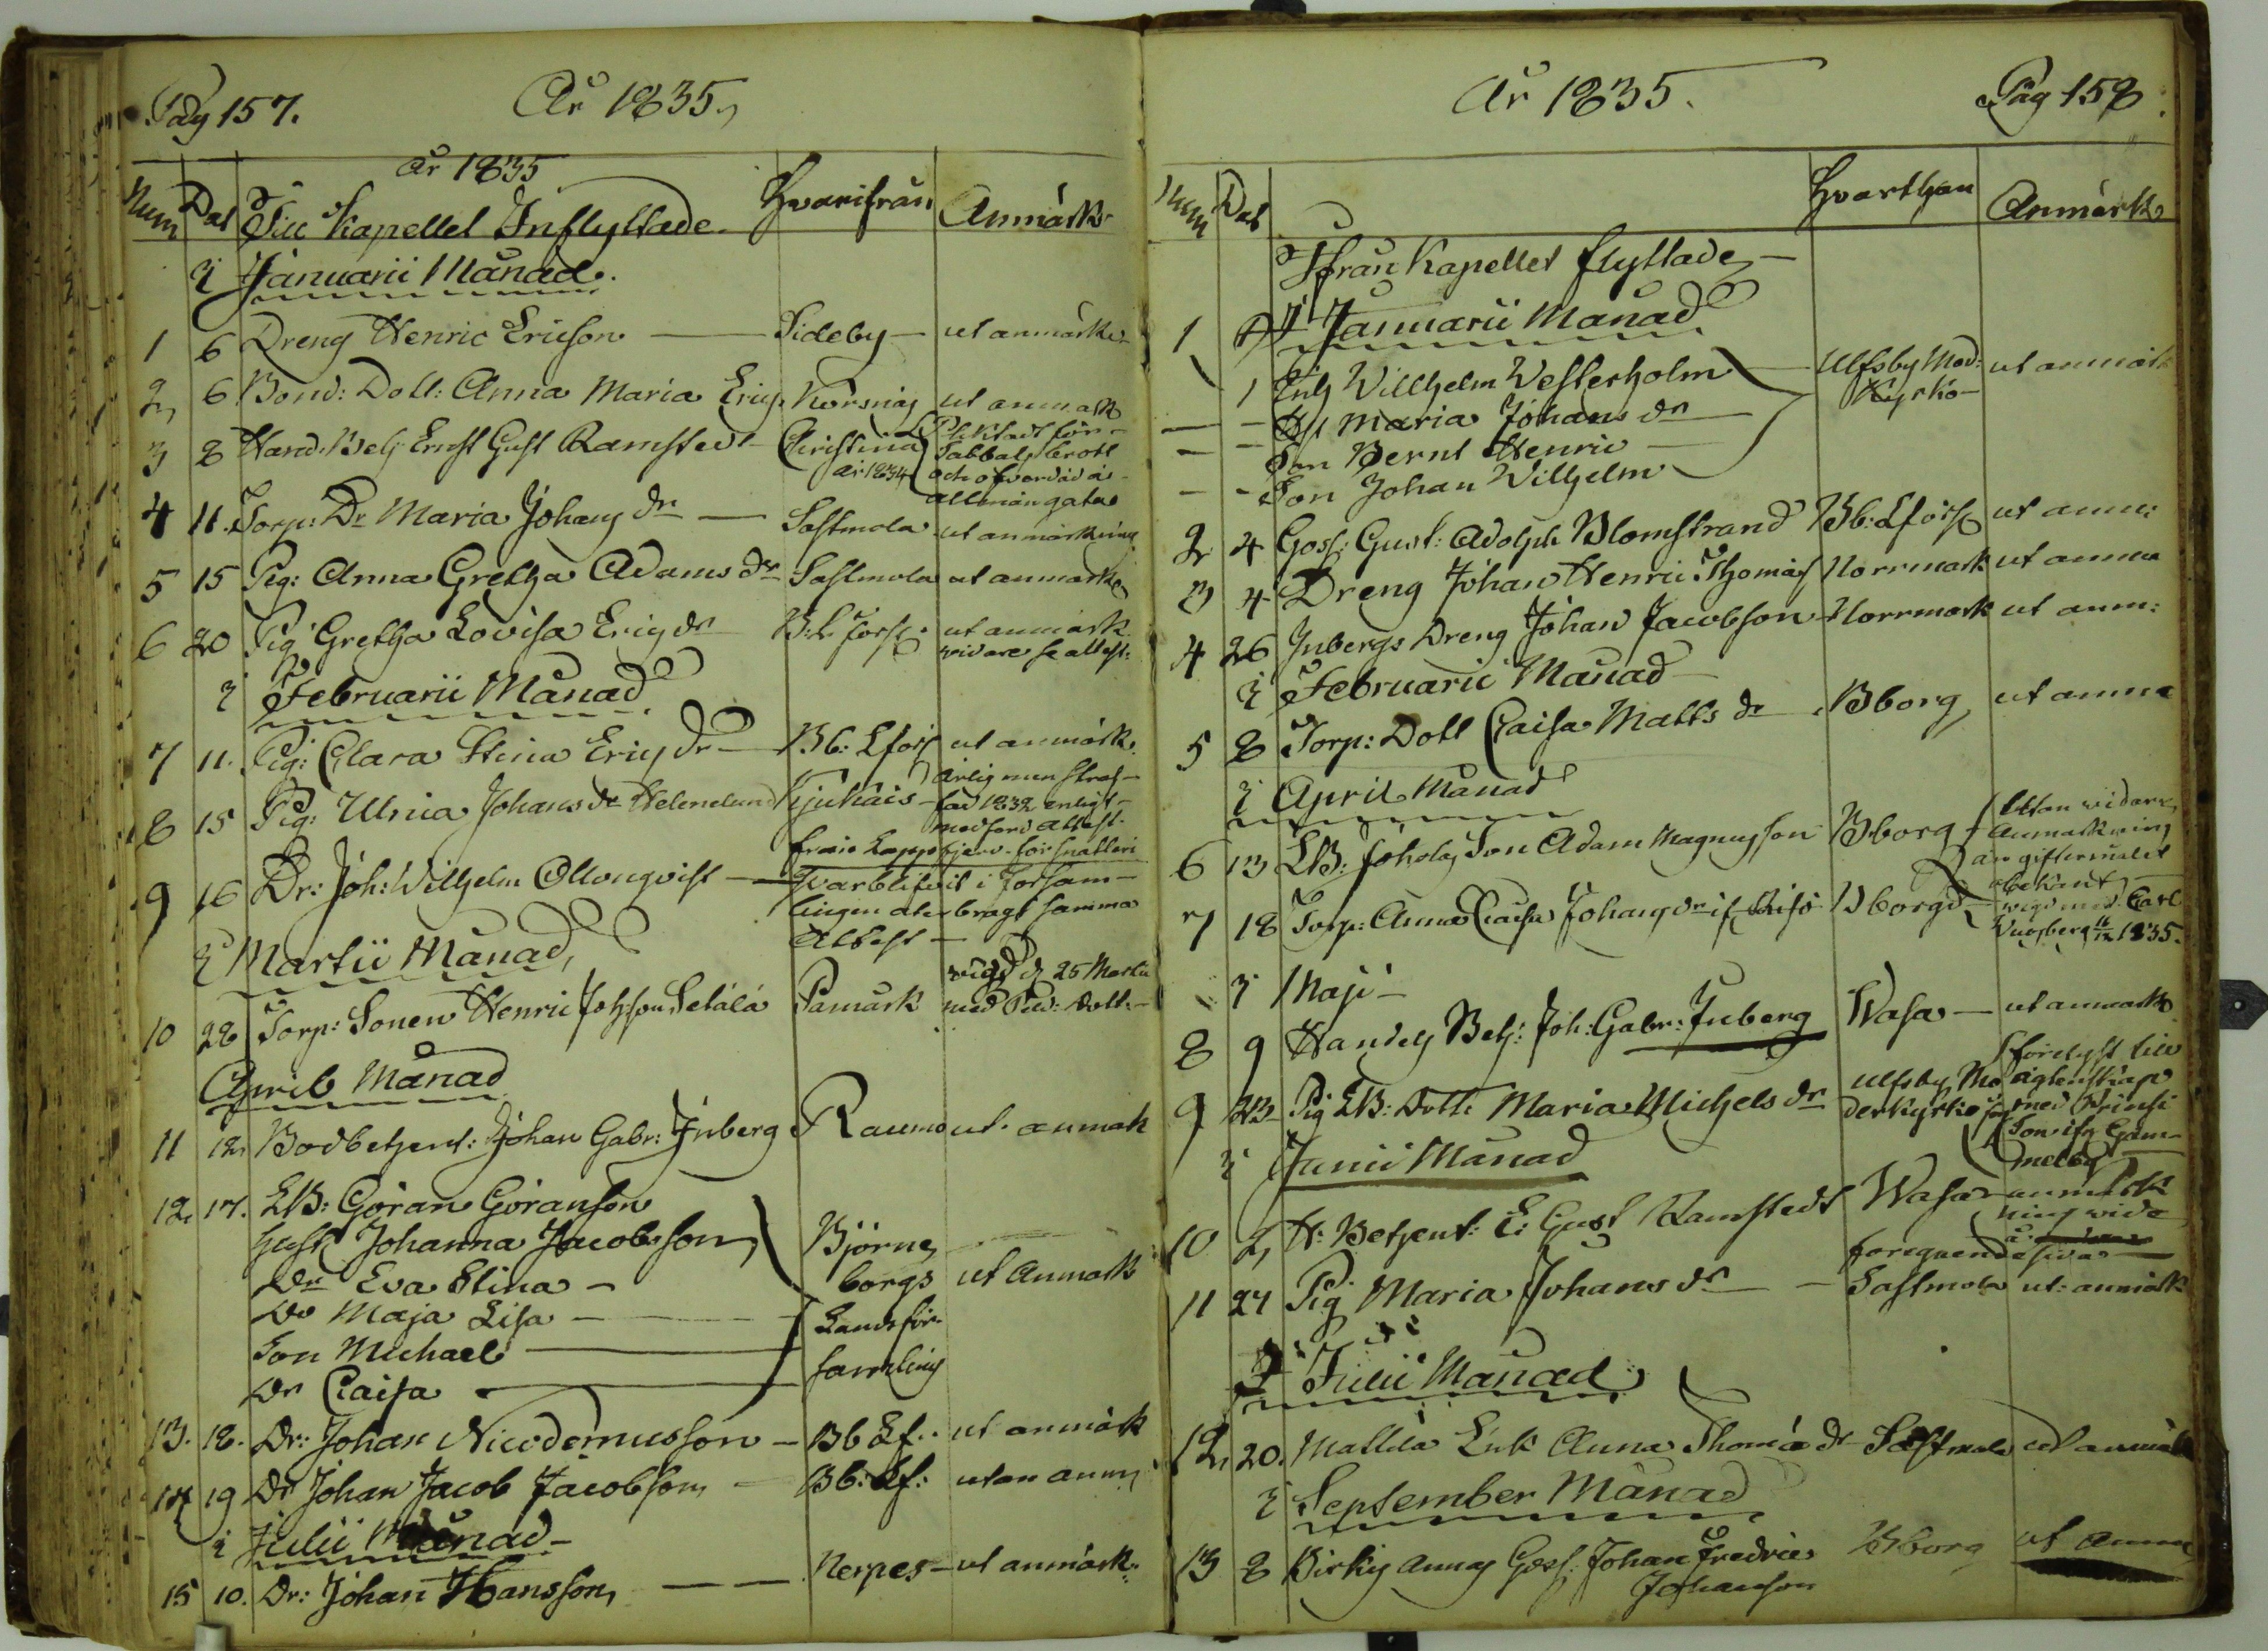 Pag 157.
År 1835
År 1835
Num Dat Till Kapellet Inflyttade. Hvarifrån Anmärk
i Januarii Månad.
1 6 Dreng Henric Ericson — Sideby — ut anmärk
2 6 Bond: Dott: Anna Maria Erics Korsnäs ut anmärk
3 8 Hand. Betj Ernst Gust Ramstedt Christina
år 1834
Sabbats brott
och oford å
allmän gata
4 11. Torp: Dr Maria Johans dr — Sastmola ut anmärkning
5 15 Pig: Anna Gretha Adams dr Sastmola ut anmärk
6 20 Pig Gretha Lovisa Erics dr B: L förs: ut anmärk
vidare se attest:
i Februarii Månad
7 11. Pig: Clara Stina Erics dr — Bb: Lförs ut anmärk
8 15 Pig: Ulrica Johans dr Helenelund
ärlig men straf-
fad 1832 enligt
medförd attest.
från Lappfjerd för snatteri
9 16 Dr: Joh: Wilhelm Ollonqvist — qvarblifvit i Församlingen
återbragt samma
Attest —
i Martii Månad,
10 28 Torp: Sonen Henric Johsson Setälä Pamark
vigd d 25 Martii
med Dott:
April Månad
11 12 Bodbetjent: Johan Gabr: Inberg Raumo ut. anmärk
12 17. LB: Göran Göransson
Hust Johanna Jacobsson
Dr Eva Stina —
Do Maja Lisa —
Son Michael —
Dr Caisa —
Björne
borgs
Landsför
samling
ut Anmärk
13. 18. Dr: Johan Nicodemusson — Bb Lf: ut anmärk
14 19 Dr Johan Jacob Jacobsson — Bb: Lf: utan anm
i Julii Månad —
15 10. Dr: Johan Hansson, — Nerpes — ut anmärk:
År 1835.
Pag 158.
Num Dat Hvarthän Anmärk
Ifrån Kapellet flyttade —
i Januarii Månad
1 1 Inh Willhelm Westerholm
Hu Maria Johans dr —
Son Bernt Henric —
Son Johan Wilhelm
Ulfsby Mod:
Kyrko —
ut anmärk
2 4 Goss: Gust: Adolph Blomstrand Bb: Lförs ut anm:
3 4 Dreng Johan Henric Thomas Norrmark ut anm
4 26 Inbergs Dreng Johan Jacobson Norrmark ut anm:
i Februarii Månad —
5 8 Torp: Dott Caisa Matts dr Bborg, ut anm
i April Månad
6 13 LB: Son Adam Magnusson Bborg
Utan vidare
Anmärkning
än giftermålet
7 18 Torp: Anna Caisa Johans dr Bborg
bekant
vigd med Carl
1835.
i Maji —
8 9 Handels Betj: Joh: Gabr: Inberg Wasa — ut anmärk
9 23 Pig LB: Dott: Maria Michels dr
Ulfsby Mo
derkyrko
förelyst till
ägtenskap
med
i Junii Månad
10 2 H: Betjent: E: Gust Ramstedt Wasa — anmärk
ning vide
foregående
11 27 Pig Maria Johans dr — Sastmola ut: anmärk
i Julii Månad
12 20. Mattila Enk Anna Thomæ dr Sastmola ut anmärk
i September Månad
13 8 Annas Goss: Johan Fredric
Johansson
Bborg ut anm